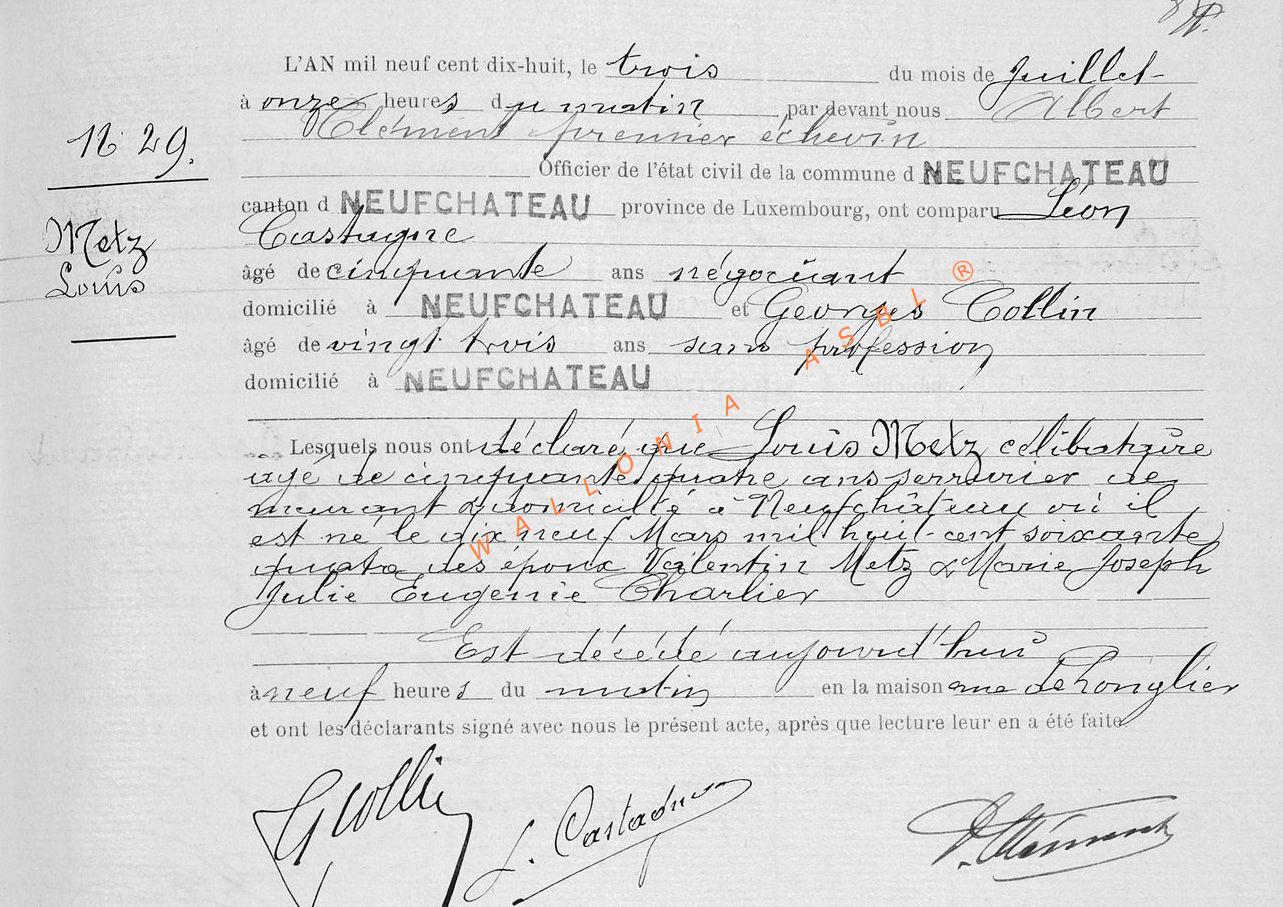 L'AN mil neuf cent dix-huit, le trois du mois de Juillet
à onze heures du matin par devant nous Albert
Clément premier échevin
N° 29.
Officier de l'état civil de la commune d NEUFCHATEAU
canton d NEUFCHATEAU province de Luxembourg, ont comparu Léon
Metz
Louis
Castagne
âgé de cinquante ans négociant
domicilié à NEUFCHATEAU et Georges Collin
âgé de vingt trois ans sans profession
domicilié à NEUFCHATEAU
Lesquels nous ont déclaré que Louis Metz célibataire
agé de cinquante quatre ans serrurier de
meurant & domicilié à Neufchâteau où il
est né le dix neuf Mars mil huit-cent soixante
quatre des époux Valentin Metz & Marie Joseph
Julie Eugénie Charlier
Est décédé aujourd'hui
à neuf heures du matin en la maison rue de Longlier
et ont les déclarants signé avec nous le présent acte, après que lecture leur en a été faite
G Collin
L. Castagne
Clément
WALLONIA ASBL ®